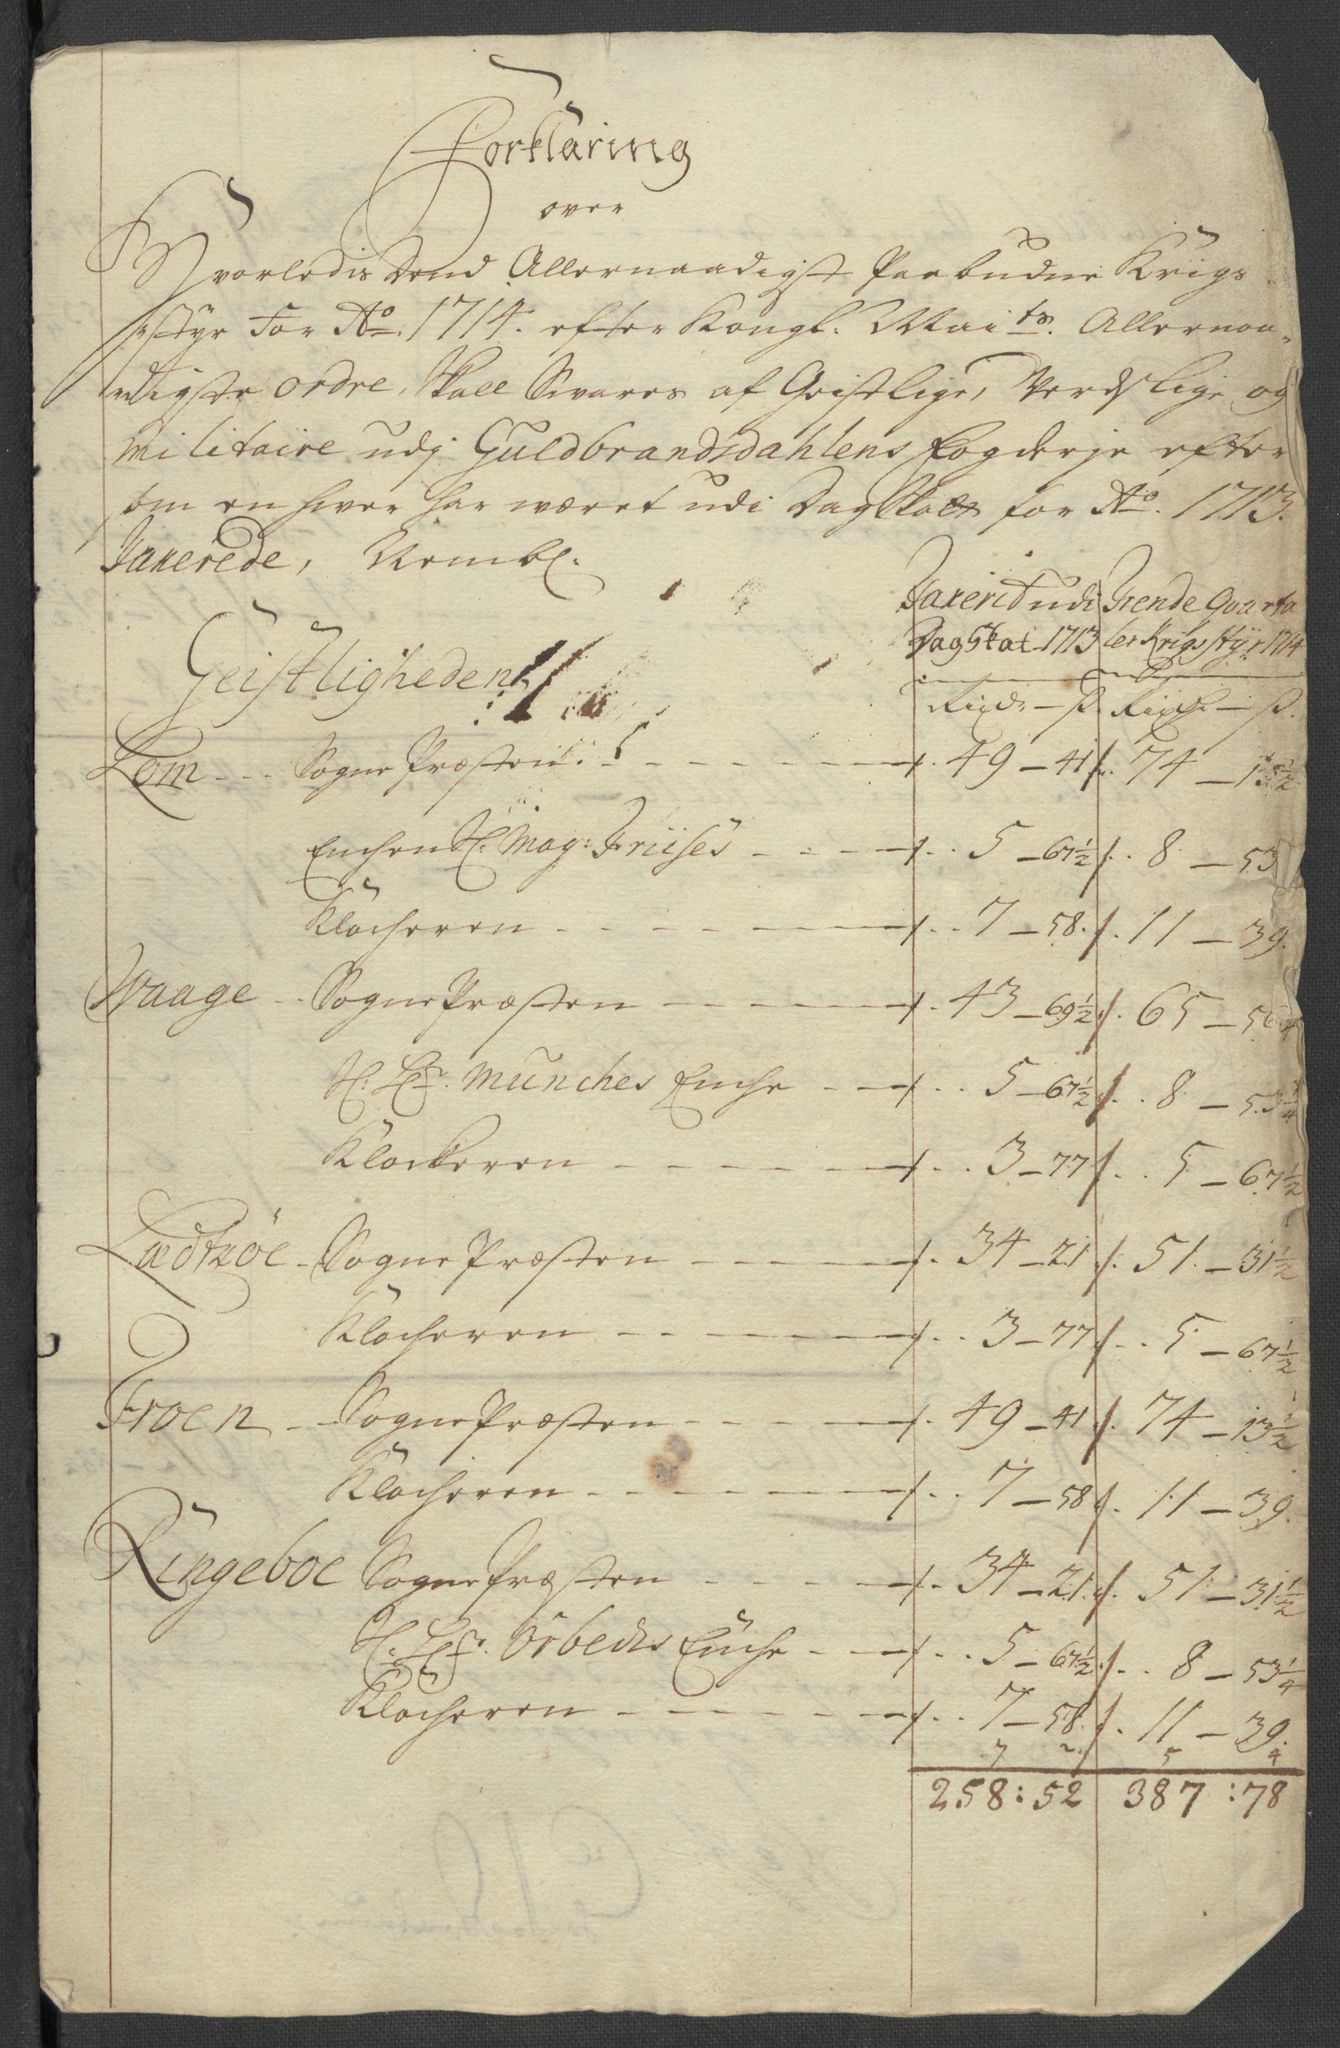 Forklaring
over
Hvorledis dend Allernaadigst Paabudne Krigs
styr For Ao. 1714. efter Kongl. Maits. Allernaa-
digste ordre, skall Svares af Geistlige, Verdslige og
militaire udj Guldbrandsdahlens fogderje efter
som en hver har været udi Dagskatt for Ao. 1713.
Taxerede, Nembl.
Taxerit udi Trende Qvarta
Dagskat 1713 ler Krigsstÿr 1714
Geistligheden
Rixdr — ß. Rixdr — ß.
Lom - - - Sogne Præsten - - - - 49 — 41 74 — 13½
Enchen H. Mag: Friises - - - 5 — 67½ 8 — 53
Klocheren - - - - 7 — 58. 11 — 39.
Waage - - Sogne Præsten - - - 43 — 69½ 65 — 56
H: munches Enche - - 5 — 67½ 8 — 53¼
Klockeren - - - - 3 — 77 5 — 67½
Sogne Præsten - - - 34 — 21 51. — 31½
Klocheren - - - - 3 — 77 5 — 67½
Froen - Sogne Præsten - - - - 49 — 41 74 — 13½
Klocheren - - - - 7 — 58 11 — 39.
Ringeboe Sogne Præsten - - - 34 — 21. 51 — 31½
H: Enche - - - 5 — 67½ 8 — 53¼
Klocheren - - - - 7 — 58. 11 — 39.
7 2 5 4
258 : 52 387 : 78